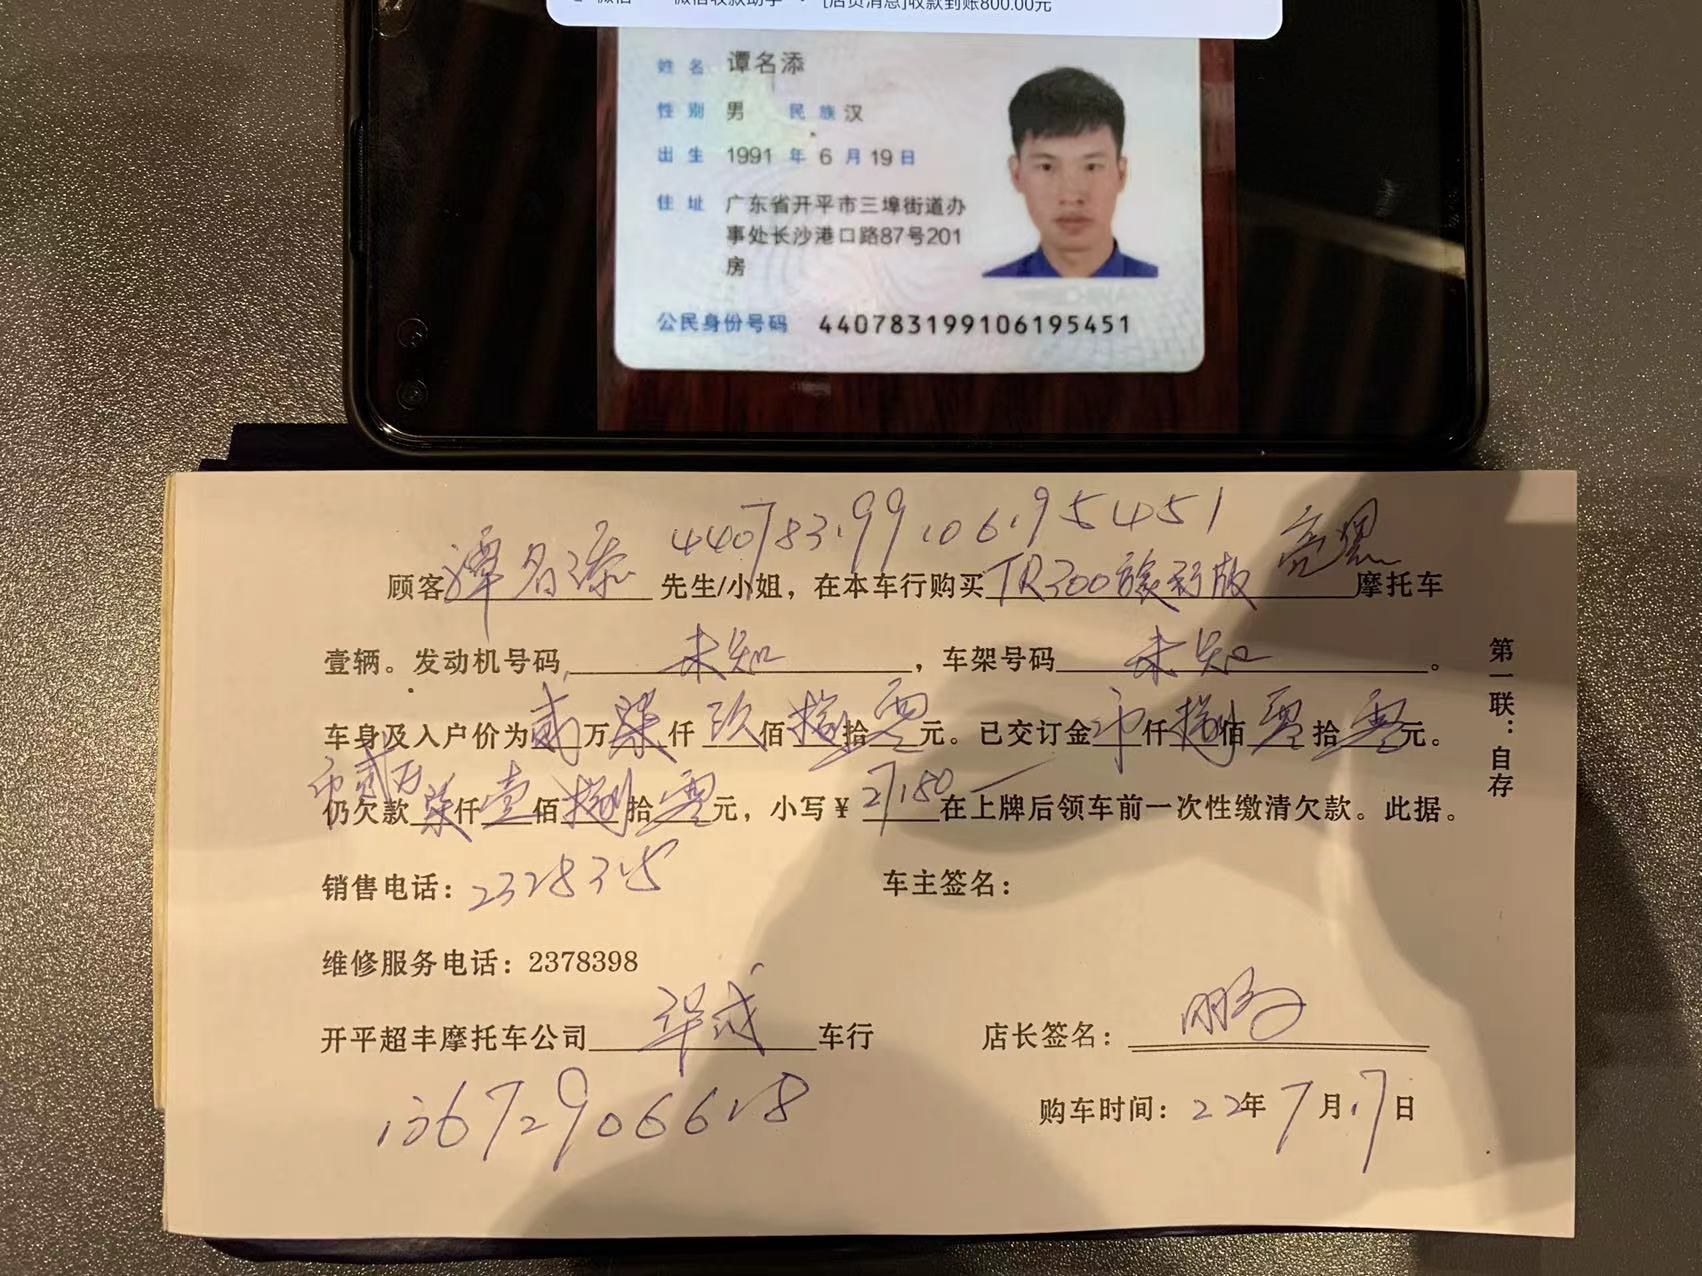 微信 微信收款助手 · [店员消息]收款到账800.00元
姓名 谭名添
性别 男 民族 汉
出生 1991 年 6 月 19 日
住址 广东省开平市三埠街道办
事处长沙港口路87号201
房
公民身份号码 440783199106195451
440783199106195451
顾客谭名添先生/小姐，在本车行购买TR300旅行版 亮黑 摩托车
壹辆。发动机号码未知，车架号码未知。
车身及入户价为贰万柒仟玖佰捌拾零元。已交订金币仟捌佰零拾零元。
币贰万
仍欠款柒仟壹佰捌拾零元，小写￥27180在上牌后领车前一次性缴清欠款。此据。
销售电话：2328315
车主签名：
维修服务电话：2378398
开平超丰摩托车公司华成车行
店长签名：
13672906628
购车时间：22年7月17日
第一联：自存